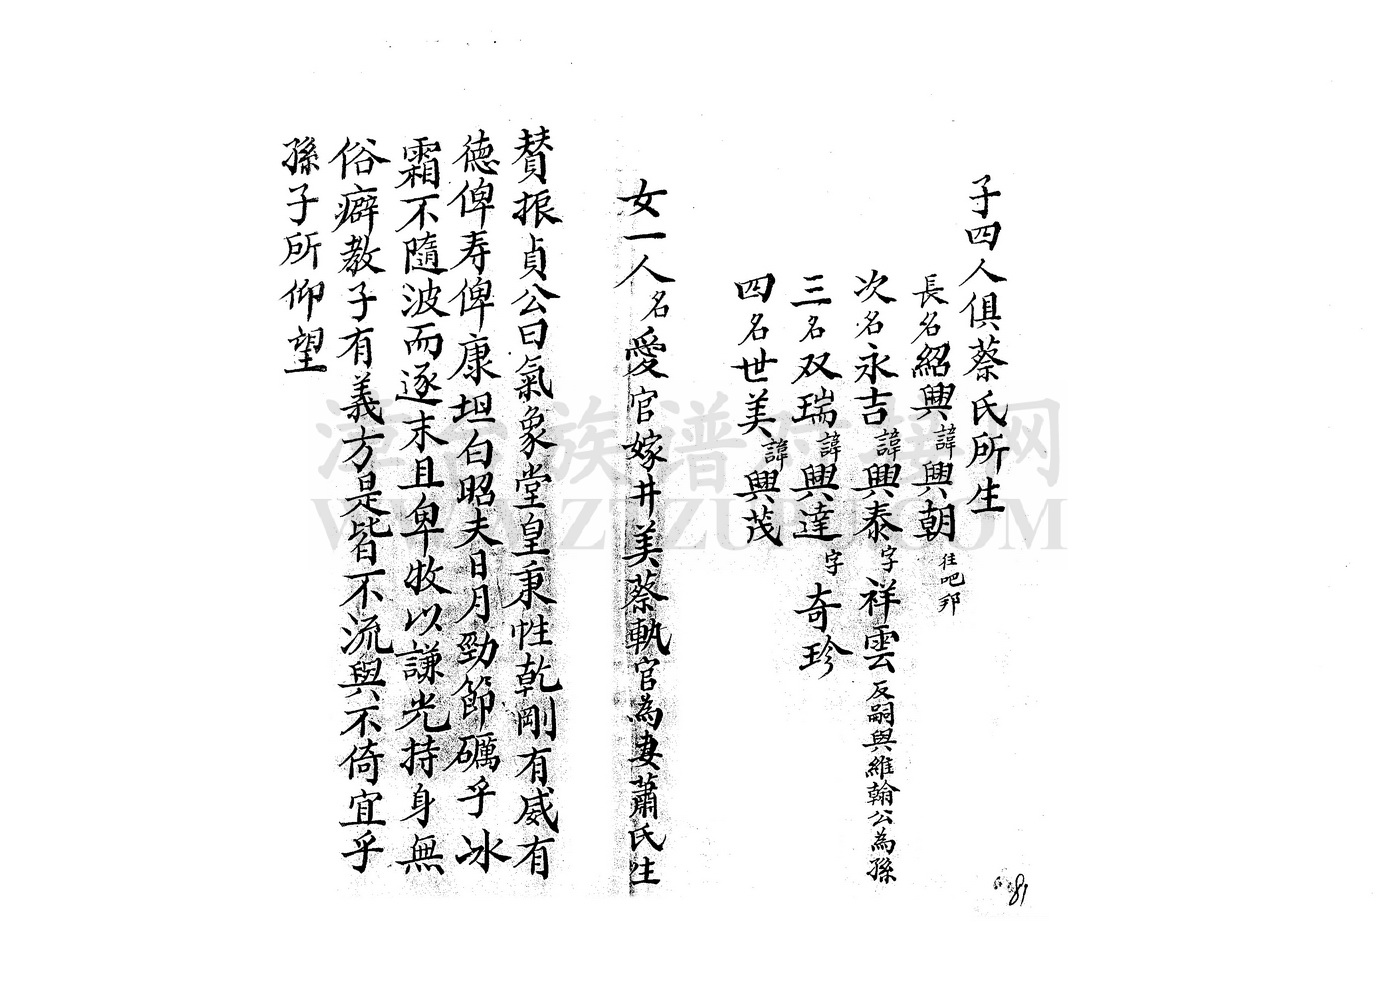 子四人俱蔡氏所生
長名紹興諱興朝往吧邦
次名永吉諱興泰字祥雲反嗣與維翰公為孫
三名双瑞諱興達字奇珍
四名世美諱興茂
女一人名愛官嫁井美蔡執官為妻蕭氏生
賛振貞公曰氣象堂皇秉性乾剛有威有
德俾寿俾康坦白昭夫日月勁節礪乎冰
霜不隨波而逐末且卑牧以謙光持身無
俗癖教子有義方是皆不流與不倚宜乎
孫子所仰望
漳台族谱对接网
WWW.ZTZUPU.COM
81